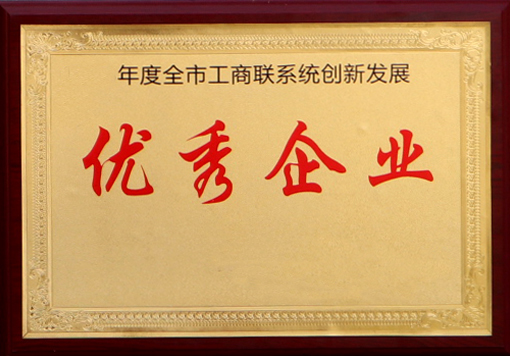 年度全市工商联系统创新发展
优秀企业